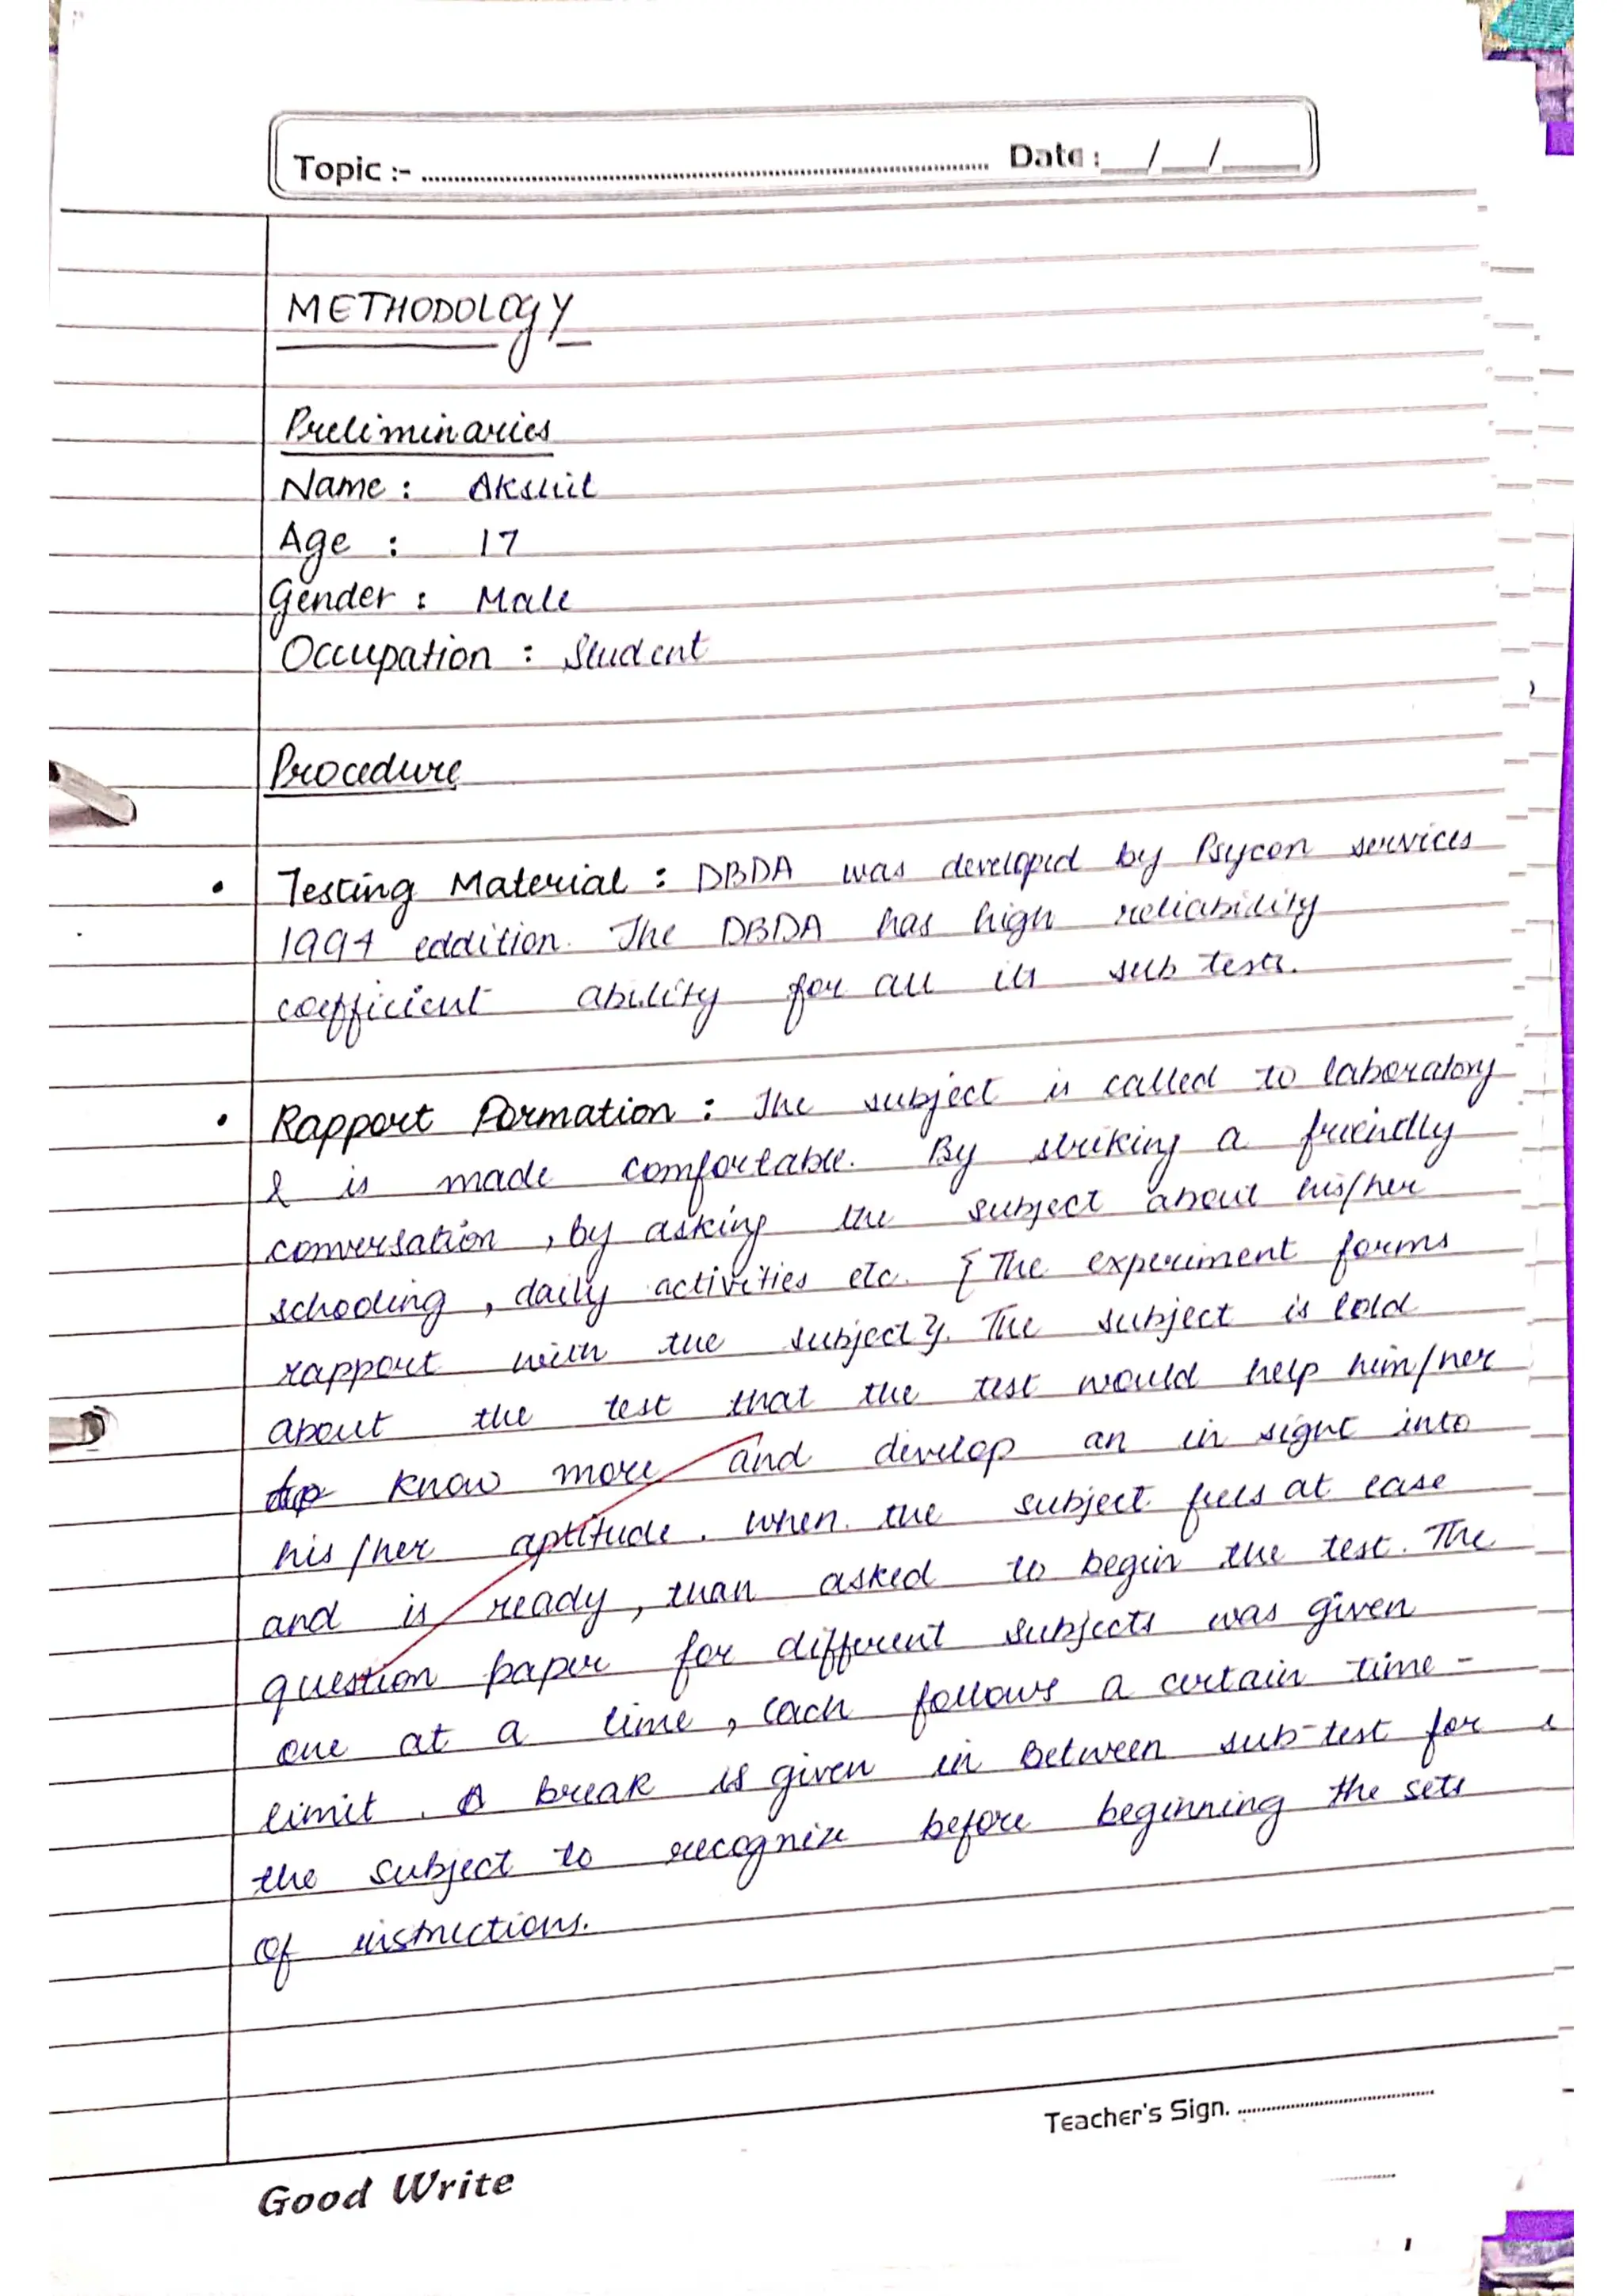 Topic :- ........................ Date : __/__/____
METHODOLOGY
Preliminaries
Name : Akshit
Age : 17
Gender : Male
Occupation : Student
Procedure
• Testing Material : DBDA was developed by Psycon services
1994 eddition. The DBDA has high reliability
coefficient ability for all its sub tests.
• Rapport Formation : The subject is called to laboratory
& is made comfortable. By striking a friendly
conversation , by asking the subject about his/her
schooling , daily activities etc. {The experiment forms
rapport with the subject}. The subject is told
about the test that the test would help him/her
know more and develop an in sight into
his/her aptitude. when the subject feels at ease
and is ready, than asked to begin the test. The
question paper for different subjects was given
one at a time , each follows a certain time -
limit . A break is given in Between sub-test for
the subject to recognize before beginning the sets
of instructions.
Teacher's Sign. ........................
Good Write